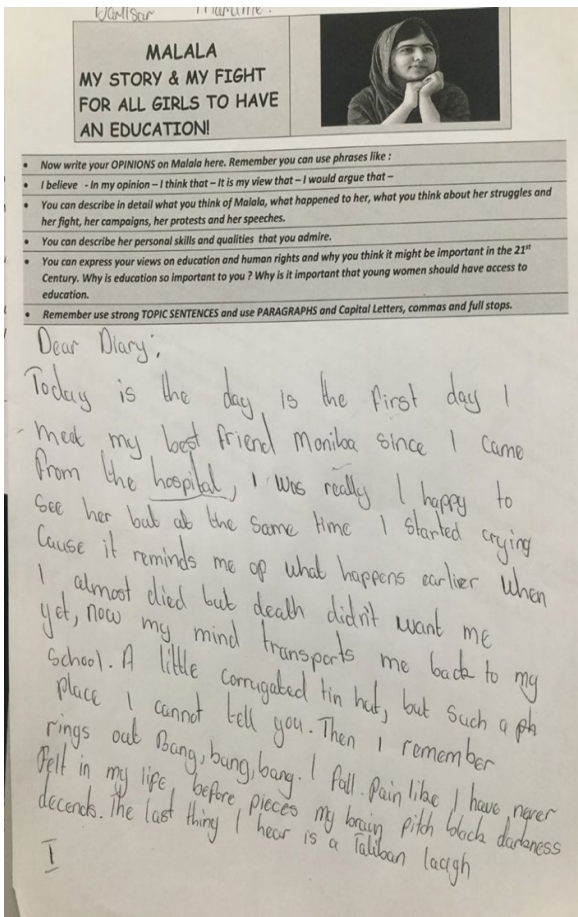 MALALA
MY STORY & MY FIGHT
FOR ALL GIRLS TO HAVE
AN EDUCATION!
• Now write your OPINIONS on Malala here. Remember you can use phrases like :
• I believe - In my opinion – I think that – It is my view that – I would argue that –
• You can describe in detail what you think of Malala, what happened to her, what you think about her struggles and
her fight, her campaigns, her protests and her speeches.
• You can describe her personal skills and qualities that you admire.
• You can express your views on education and human rights and why you think it might be important in the 21st
Century. Why is education so important to you ? Why is it important that young women should have access to
education.
• Remember use strong TOPIC SENTENCES and use PARAGRAPHS and Capital Letters, commas and full stops.
Dear Diary,
Today is the day, is the first day I
meet my best friend Moniba since I came
from the hospital, I was really I happy to
see her but at the same time I started crying
Cause it reminds me of what happens earlier when
I almost died but death didn't want me
yet, now my mind transports me back to my
school. A little corrugated tin hut, but such a ph
place I cannot tell you. Then I remember
rings out Bang, bang, bang. I fall. Pain like I have never
felt in my life before, pieces my brain pitch black darkness
decends. The last thing I hear is a Taliban laugh
I